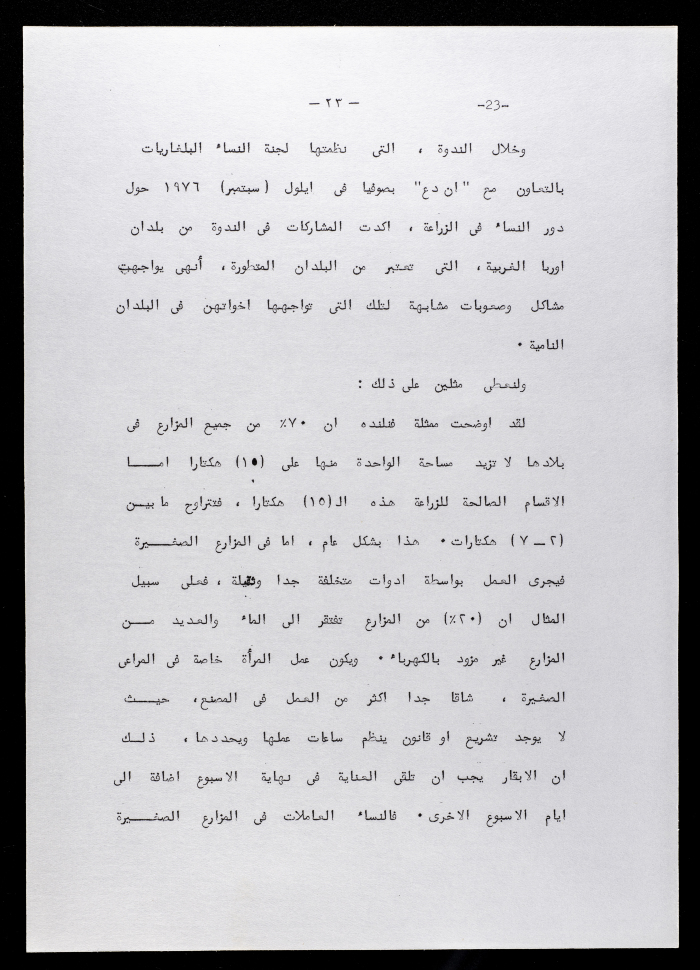 -٢٣-
-23-
وخلال الندوة ، التى نظمتها لجنة النساء البلغاريات
بالتعاون مع "ان دع" بصوفيا فى ايلول (سبتمبر) ١٩٧٦ حول
دور النساء فى الزراعة ، اكدت المشاركات فى الندوة من بلدان
اوربا الغربية ، التى تعتبر من البلدان المتطورة ، أنهى يواجهن
مشاكل وصعوبات مشابهة لتلك التى تواجهها اخواتهن فى البلدان
النامية ٠
ولنعطى مثلين على ذلك :
لقد اوضحت ممثلة فنلنده ان ٧٠٪ من جميع المزارع فى
بلادها لا تزيد مساحة الواحدة منها على (١٥) هكتارا امـــا
الاقسام الصالحة للزراعة هذه الـ(١٥) هكتارا ، فتتراوح ما بيــن
(٢ــ٧) هكتارات ٠ هذا بشكل عام ، اما فى المزارع الصغــيرة
فيجرى العمل بواسطة ادوات متخلفة جدا وثقيلة ، فعلى سبيل
المثال ان (٢٠٪) من المزارع تفتقر الى الماء والعديد مــن
المزارع غير مزود بالكهرباء ٠ ويكون عمل المرأة خاصة فى المراعى
الصغيرة ، شاقا جدا اكثر من العمل فى المصنع ، حيــث
لا يوجد تشريع او قانون ينظم ساعات عملها ويحددها ، ذلــك
ان الابقار يجب ان تلقى العناية فى نهاية الاسبوع اضافة الى
ايام الاسبوع الاخرى ٠ فالنساء العاملات فى المزارع الصغــيرة